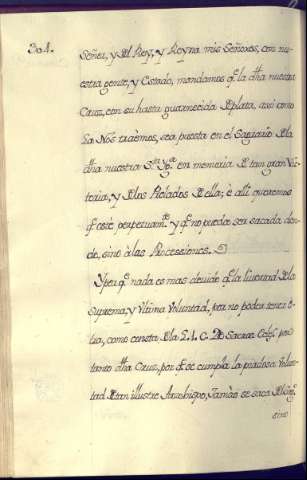 304.
Señor, y del Rey, y Reyna mis Señores, con nu-
estra gente, y Estado, mandamos q̃ la dħa nuestra
Cruz, con su hasta guarnecida de plata, assi como
la Nos traemos, sea puesta en el Sagrario de la
dħa nuestra S.ta Yg.a en memoria de tan gran Vic-
toria, y de los Prelados de ella; è alli queremos
q̃ este perpetuam.te y q̃ no pueda ser sacada den-
de, sino à las Processiones.
Y por q̃ nada es mas devido q̃ la livertad de la
suprema, y Vltima Voluntad, por no poder tener
como consta de la L. 1. C. de Sacros. Eccles. por
tanto dħa Cruz, por q̃ se cumpla la piadosa Volun-
tad de tan illustre Arzobispo, Jamàs se saca
sino